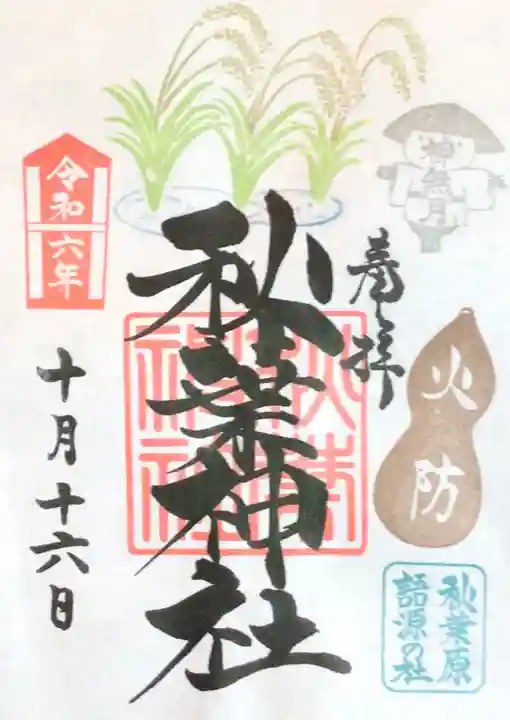 神無月
奉拝
火防
秋葉原
語源の社
秋葉神社
秋葉
神社
令和
六年
十月十六日